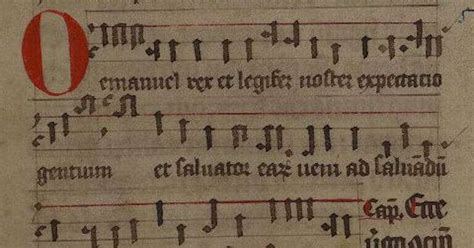 O
emanuel rex et legifer noster expectatio
gentium et saluator earꝝ ueni ad saluādū
Cap̄. Ecce